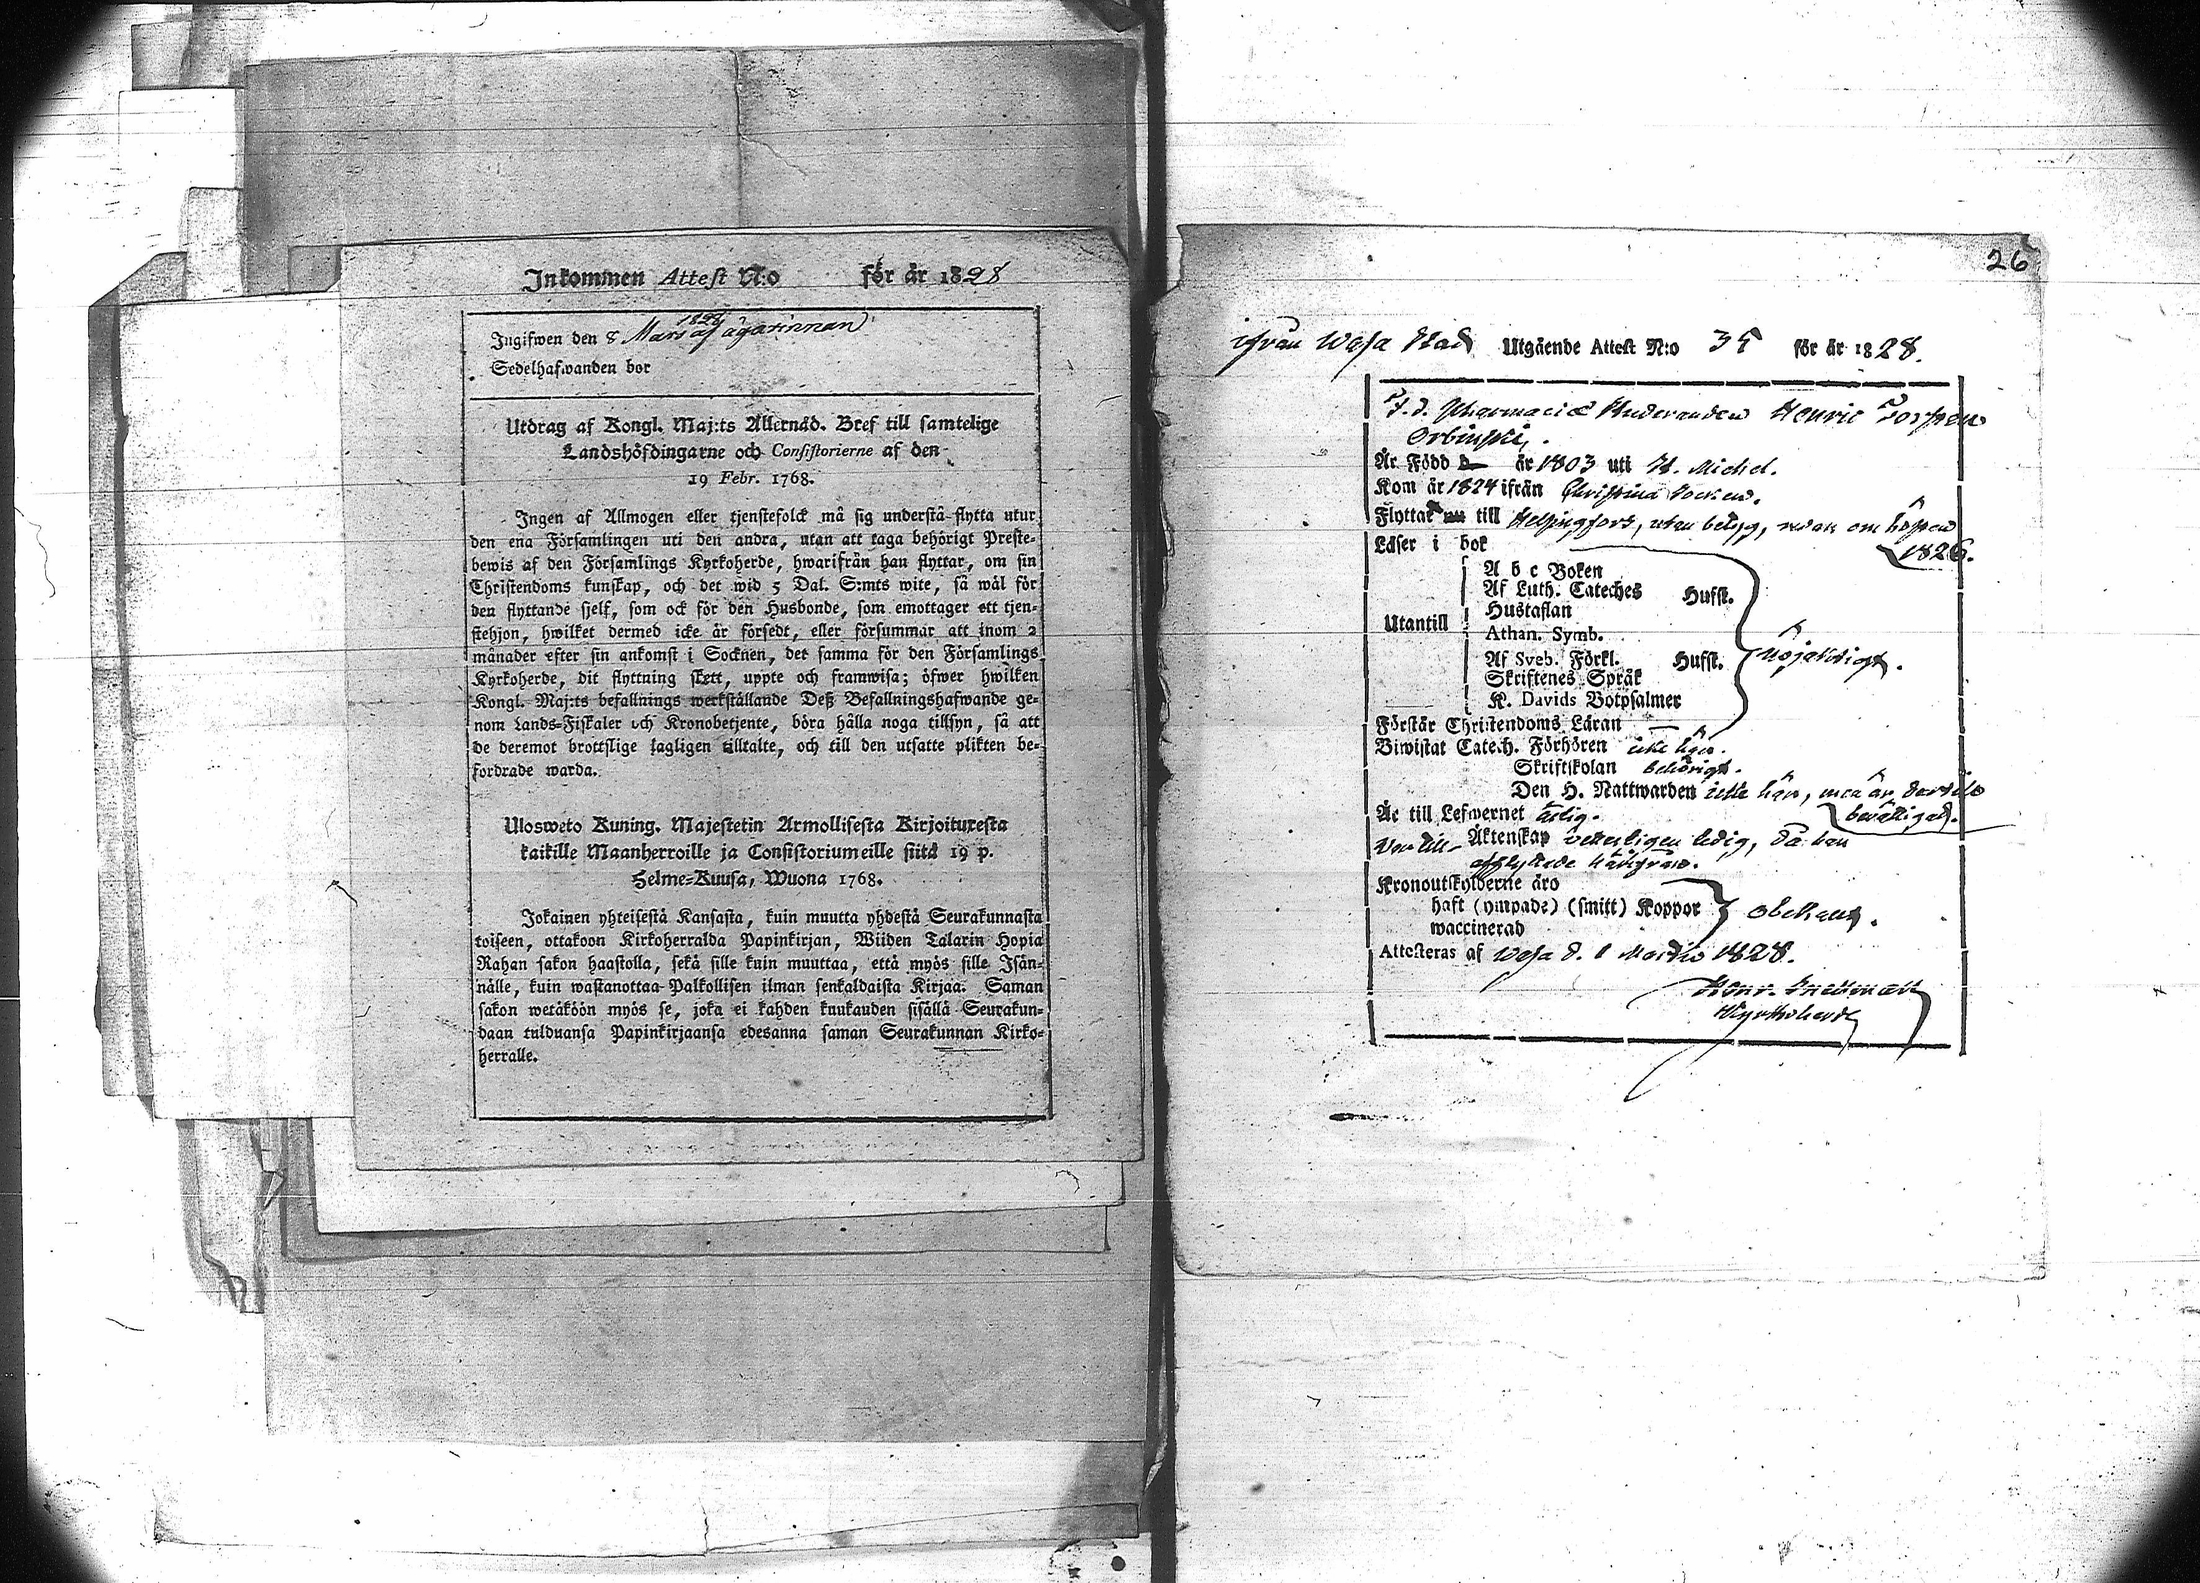 Inkommen Attest N:o för år 1828
Ingifwen den 8 Mars 1828 af ägarinnan
Sedelhafwanden bor
Utdrag af Kongl. Maj:ts Allernåd. Bref till samtelige
Landshöfdingarne och Consistorierne af den
19 Febr. 1768.
Ingen af Allmogen eller tjenstefolck må sig understå flytta utur
den ena Församlingen uti den andra, utan att taga behörigt Preste-
bewis af den Församlings Kyrkoherde, hwarifrån han flyttar, om sin
Christendoms kunskap, och det wid 5 Dal. S:mts wite, så wäl för
den flyttande sjelf, som ock för den Husbonde, som emottager ett tjen-
stehjon, hwilket dermed icke är försedt, eller försummar att inom 2
månader efter sin ankomst i Socknen, det samma för den Församlings
Kyrkoherde, dit flyttning skett, uppte och framwisa; öfwer hwilken
Kongl. Maj:ts befallnings werkställande Deß Befallningshafwande ge-
nom Lands-Fiskaler och Kronobetjente, böra hålla noga tillsyn, så att
de deremot brottslige lagligen tilltalte, och till den utsatte plikten be-
fordrade warda.
Ulosweto Kuning. Majestetin Armollisesta Kirjoituxesta
kaikille Maanherroille ja Consistoriumeille siitä 19 p.
Helme-Kuusa, Wuona 1768.
Jokainen yhteisestä Kansasta, kuin muutta yhdestä Seurakunnasta
toiseen, ottakoon Kirkoherralda Papinkirjan, Wiiden Talarin Hopia
Rahan sakon haastolla, sekä sille kuin muuttaa, että myös sille Isän-
nälle, kuin wastanottaa Palkollisen ilman senkaldaista Kirjaa. Saman
sakon wetäköön myös se, joka ei kahden kuukauden sisällä Seurakun-
daan tulduansa Papinkirjaansa edesanna saman Seurakunnan Kirko-
herralle.
26
ifrån Wasa Stad Utgående Attest N:o 35 för år 1828.
F. d. Pharmaciæ Studeranden Henric
Orbinski.
Är Född år 1803 uti St. Michel.
Kom år 1824 ifrån Christina socken.
Flyttat till Helsingfors, utan betyg, redan om hösten
1826.
Läser i bok
A b c Boken
Af Luth. Cateches Hufst.
Hustaflan
Utantill
Athan. Symb.
Af Sveb. Förkl. Hufst. Nöjaktigt.
Skriftenes Språk
K. Davids Botpsalmer
Förstår Christendoms Läran
Biwistat Catech. Förhören icke här.
Skriftskolan behörigt.
Den H. Nattwarden icke här, men är dertill
berättigad.
Är till Lefwernet ärlig.
Äktenskap veterligen ledig, då han
afflyttade härifrån.
Kronoutskylderne äro
haft (ympade) (smitt) Koppor obekant.
waccinerad
Attesteras af Wasa d. 1 Martii 1828.
Henr. Snellman
Kyrkoherde